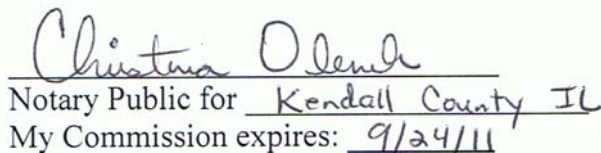 Christina
Notary Public for Kendall County IL
My Commission expires: 9/24/11